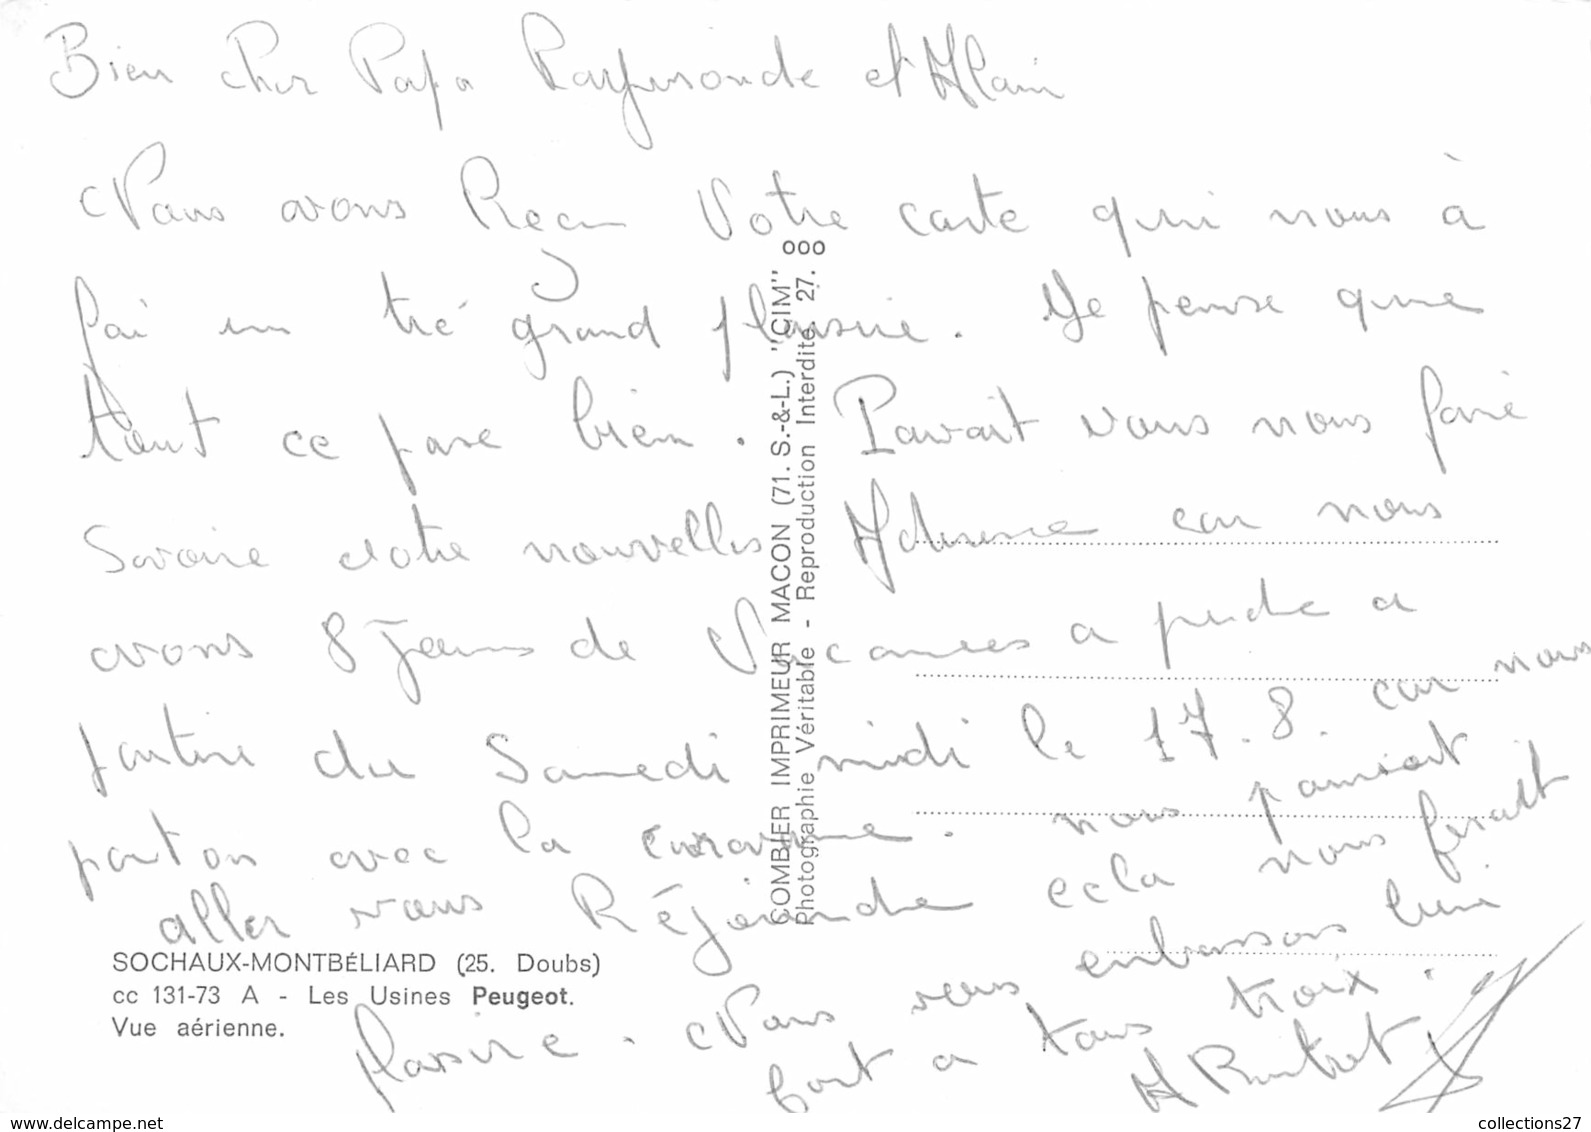 Bien cher Papa Raymonde et Alain
Nous avons Reçu Votre carte qui nous à
fai un tré grand plaisire. Je pense que
tout ce pase bien. Pouvait vous nous faire
Savoire votre nouvelles Adresse car nous
avons 8 Jours de Vacances a prendre a
partire du Samedi midi le 17.8. car nous
parton avec la caravane. nous pourriont
aller vous Réjoindre cela nous ferait
plaisire. Nous vous embrassons bien
fort a tous troix.
ooo
COMBIER IMPRIMEUR MACON (71. S.-&-L.) "CIM"
Photographie Véritable - Reproduction Interdite 27.
SOCHAUX-MONTBÉLIARD (25. Doubs)
cc 131-73 A - Les Usines Peugeot.
Vue aérienne.
collections27